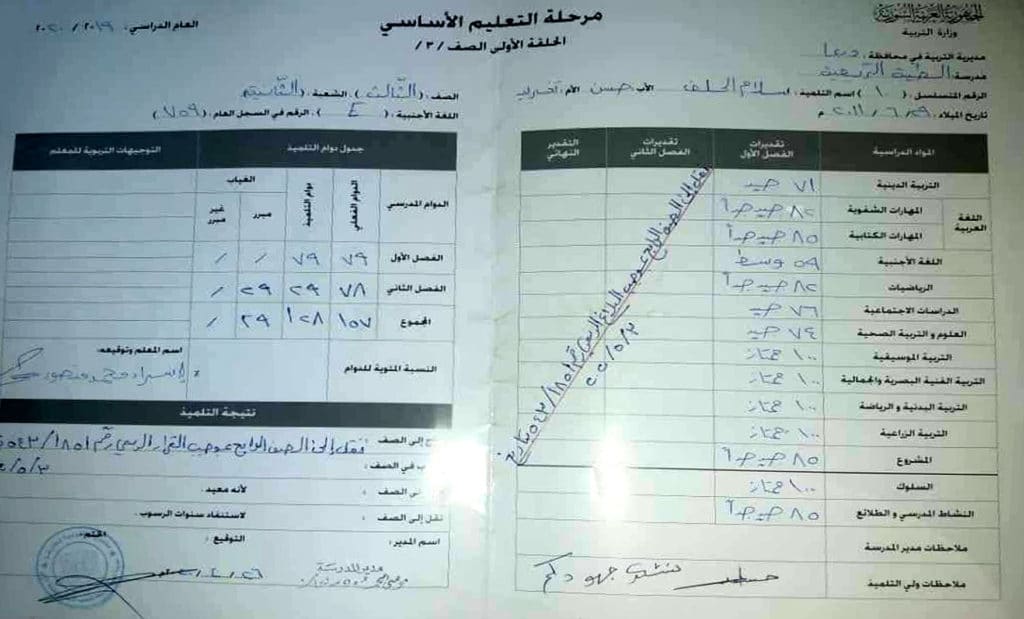 الجمهورية العربية السورية
وزارة التربية
مديرية التربية في محافظة: درعا
مدرسة:
الرقم المتسلسل: (١) اسم التلميذ: اسلام الخلف الأب: حسن الأم:
تاريخ الميلاد ٢٩ / ٦ / ٢٠١١ م
مرحلة التعليم الأساسي
الحلقة الأولى الصف /٣/
العام الدراسي: ٢٠١٩ / ٢٠٢٠
الصف: (الثالث) الشعبة: (التاسعة)
اللغة الأجنبية: (E) الرقم في السجل العام: (٧٥٩)
المواد الدراسية تقديرات الفصل الأول تقديرات الفصل الثاني التقدير النهائي
التربية الدينية ٧١ جيد
اللغة العربية
المهارات الشفوية ٨٢ جيد جداً
المهارات الكتابية ٨٥ جيد جداً
اللغة الأجنبية ٥٩ وسط
الرياضيات ٨٢ جيد جداً
الدراسات الاجتماعية ٧٦ جيد
العلوم و التربية الصحية ٧٤ جيد
التربية الموسيقية ١٠٠ ممتاز
التربية الفنية البصرية والجمالية ١٠٠ ممتاز
التربية البدنية و الرياضة ١٠٠ ممتاز
التربية الزراعية ١٠٠ ممتاز
المشروع ٨٥ جيد جداً
السلوك ١٠٠ ممتاز
النشاط المدرسي و الطلائع ٨٥ جيد جداً
نقل إلى الصف الرابع بموجب البلاغ الوزاري رقم ٥٤٣/١٨٥١ تاريخ
٢٠٢٠/٥/٣
ملاحظات مدير المدرسة
ملاحظات ولي التلميذ نشكر جهودكم
جدول دوام التلميذ التوجيهات التربوية للمعلم
الدوام المدرسي الدوام الفعلي دوام التلميذ الغياب
مبرر غير مبرر
الفصل الأول ٧٩ ٧٩ / /
الفصل الثاني ٧٨ ٢٩ ٢٩ /
المجموع ١٥٧ ١٢٨ ٢٩ /
النسبة المئوية للدوام ٪
اسم المعلم وتوقيعه:
إسراء محمد منصور
نتيجة التلميذ
إلى الصف: نقل إلى الصف الرابع بموجب القرار رقم ٥٤٣/١٨٥١
في الصف: ٥/٣
إلى الصف: لأنه معيد.
نقل إلى الصف: لاستنفاد سنوات الرسوب.
اسم المدير: التوقيع: الختم
مدير المدرسة